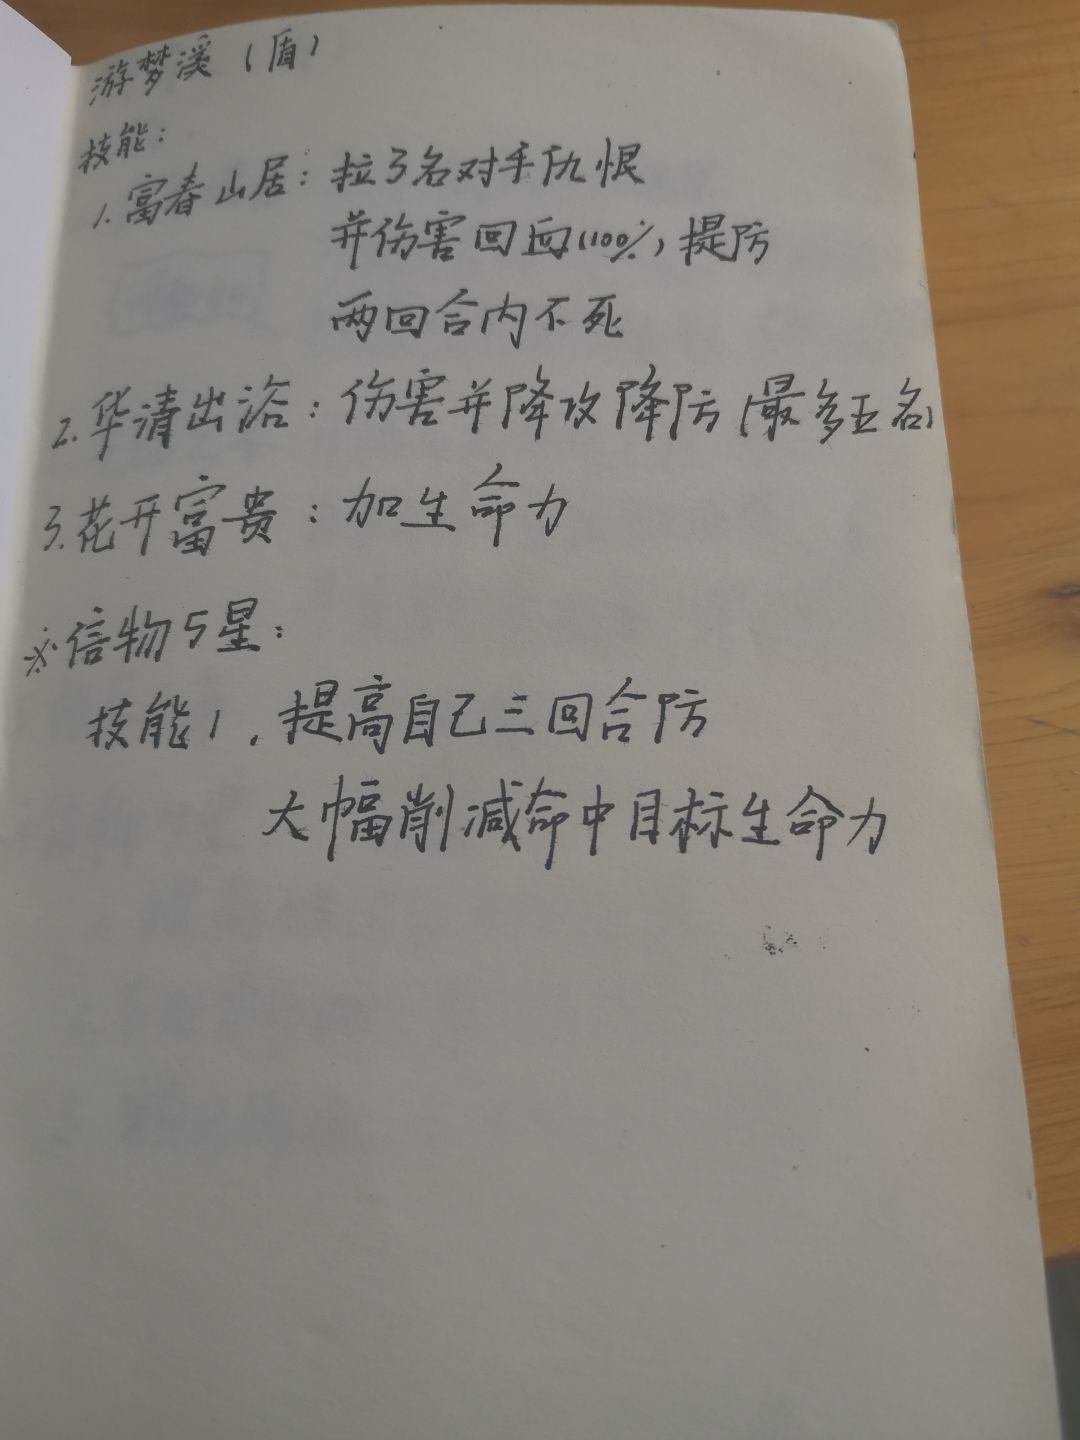 游梦溪(盾)
技能:
1.富春山居:拉3名对手仇恨
并伤害回血(100%)提防
两回合内不死
2.华清出浴:伤害并降攻降防(最多五名)
3.花开富贵:加生命力
※信物5星:
技能1,提高自己三回合防
大幅削减命中目标生命力